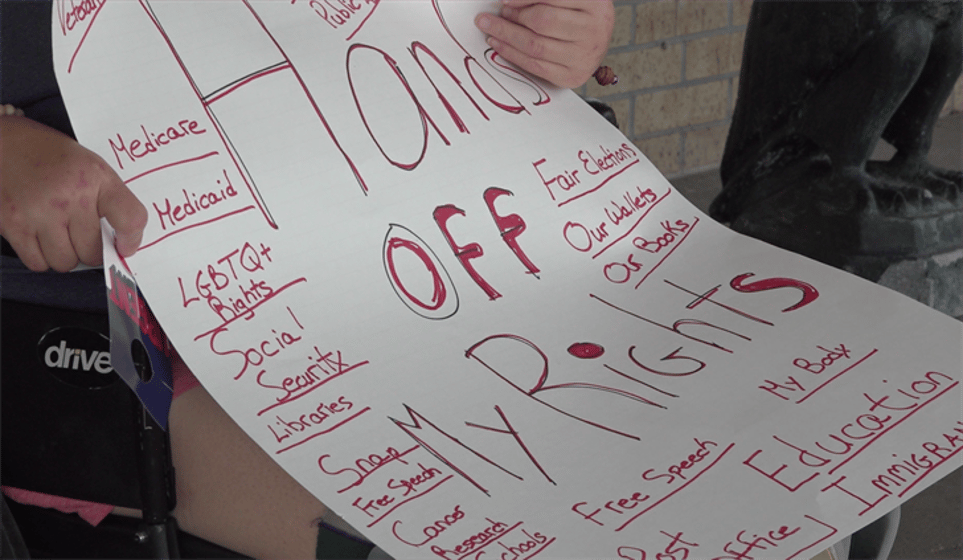 Hands
OFF
My Rights
Medicare
Medicaid
LGBTQ+
Rights
Social
Security
Libraries
Snap
Free Speech
Cancer
Research
Schools
Fair Elections
Our Wallets
Our Books
My Body
Education
Free Speech
Post
Office
drive